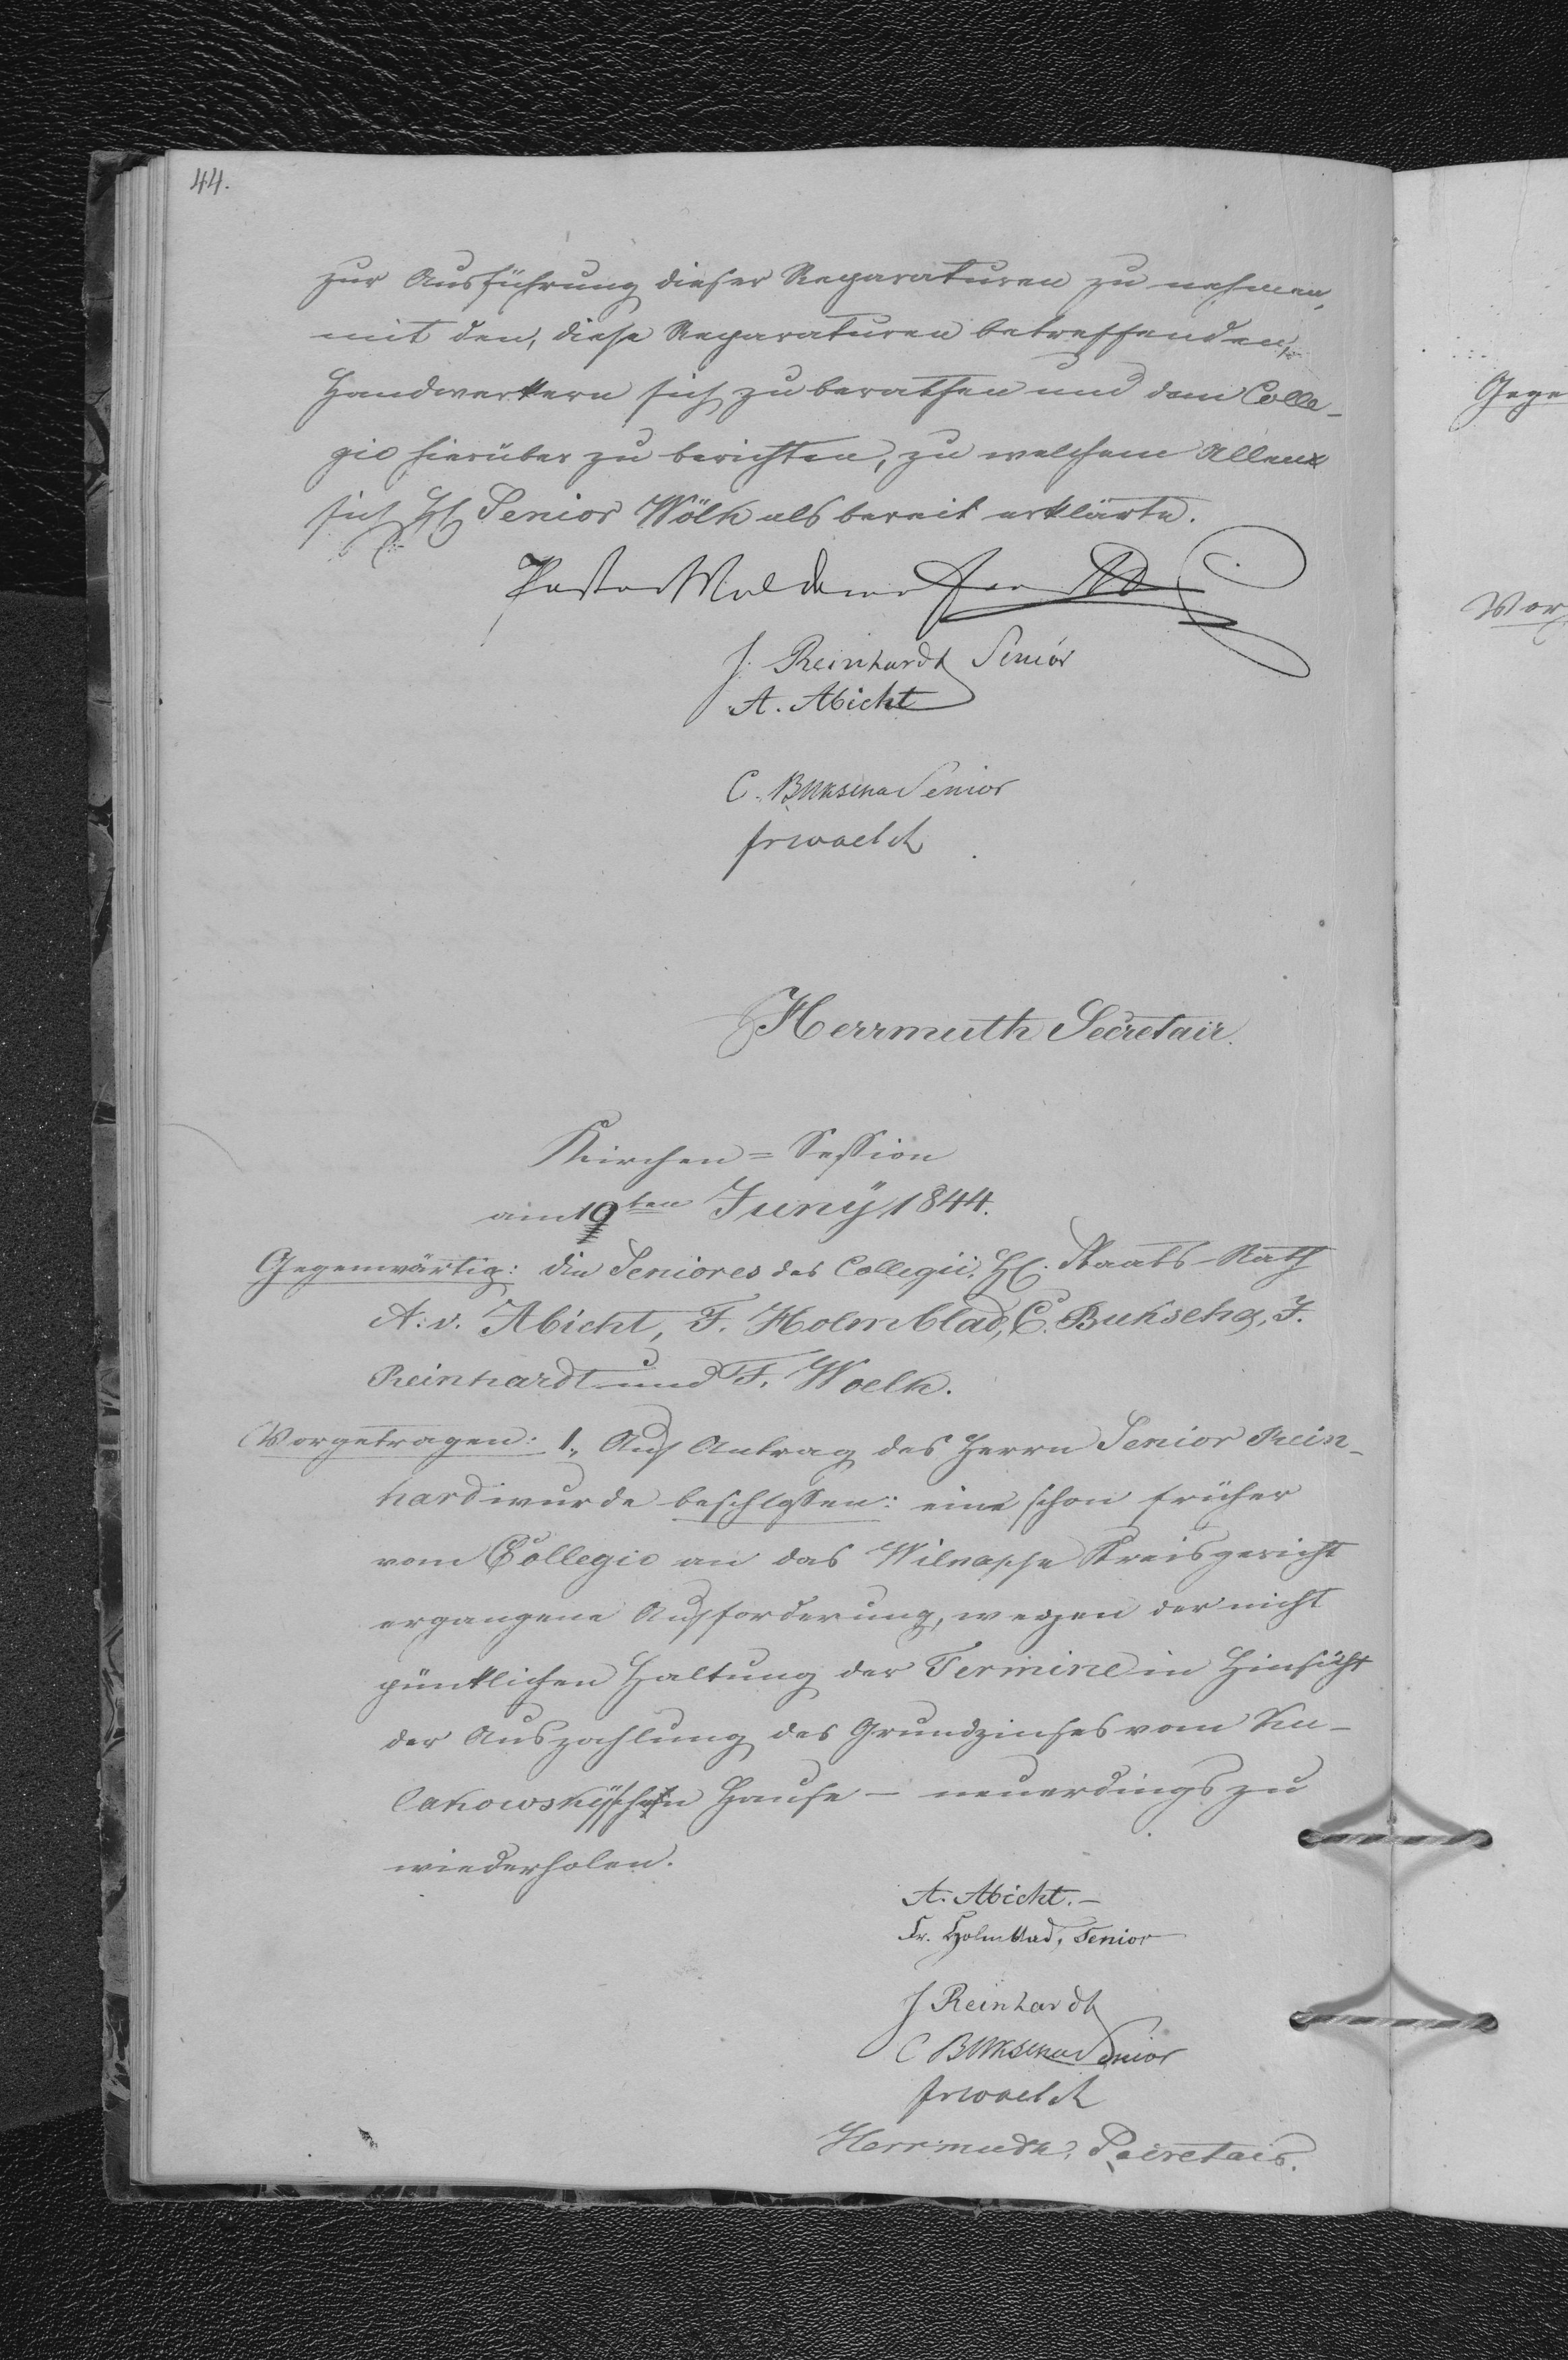 44.
zur Ausführung dieser Reparaturen zu nehmen,
mit den, diese Reparaturen betreffenden,
Handwerkern sich zu berathen und dem Colle-
gio hierüber zu berichten, zu welchem Allem
sich H. Senior Wölk als bereit erklärte.
Pastor
J. Reinhardt Senior
A. Abicht
C. Bukscha Senior
Fr woelck
Herrmuth Secretair.
Kirchen = Session
am 19ten Juny 1844.
Gegenwärtig: die Seniores des Collegii, H. Staats-Rath
A. v. Abicht, F. Holmblad, C. Bukscha, J.
Reinhardt und F. Woelk.
Vorgetragen: 1., Auf Antrag des Herrn Senior Rein-
hard wurde beschlossen: eine schon früher
vom Collegio an das Wilnasche Kreisgericht
ergangene Aufforderung, wegen der nicht
pünktlichen Haltung der Termine in Hinsicht
der Auszahlung des Grundzinses vom Ku-
lakowskyschen Hause – neuerdings zu
wiederholen.
A. Abicht. –
Fr. Holmblad, Senior
J Reinhardt
C Bukscha Senior
Fr woelck
Herrmuth, Secretair.
Gege
Vor